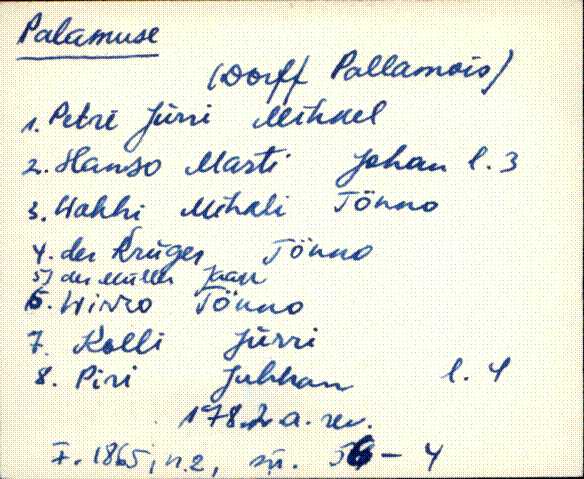 Palamuse
(Dorff Pallamois)
1. Petri Jürri Mihkel
2. Hanso Marti Johan l. 3
3. Wakki Mihkli Tönno
4. der Krüger Tönno
5) der Müller Jaan
6. Wirro Tönno
7. Kolli Jürri
8. Piri Juhhan l. 4
1782. a. rev.
F. 1865, n. 2, sü. 56 – 4